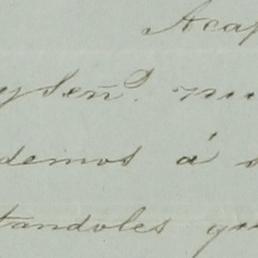 Acap
y Señ.r mu
demos á
tandoles qu